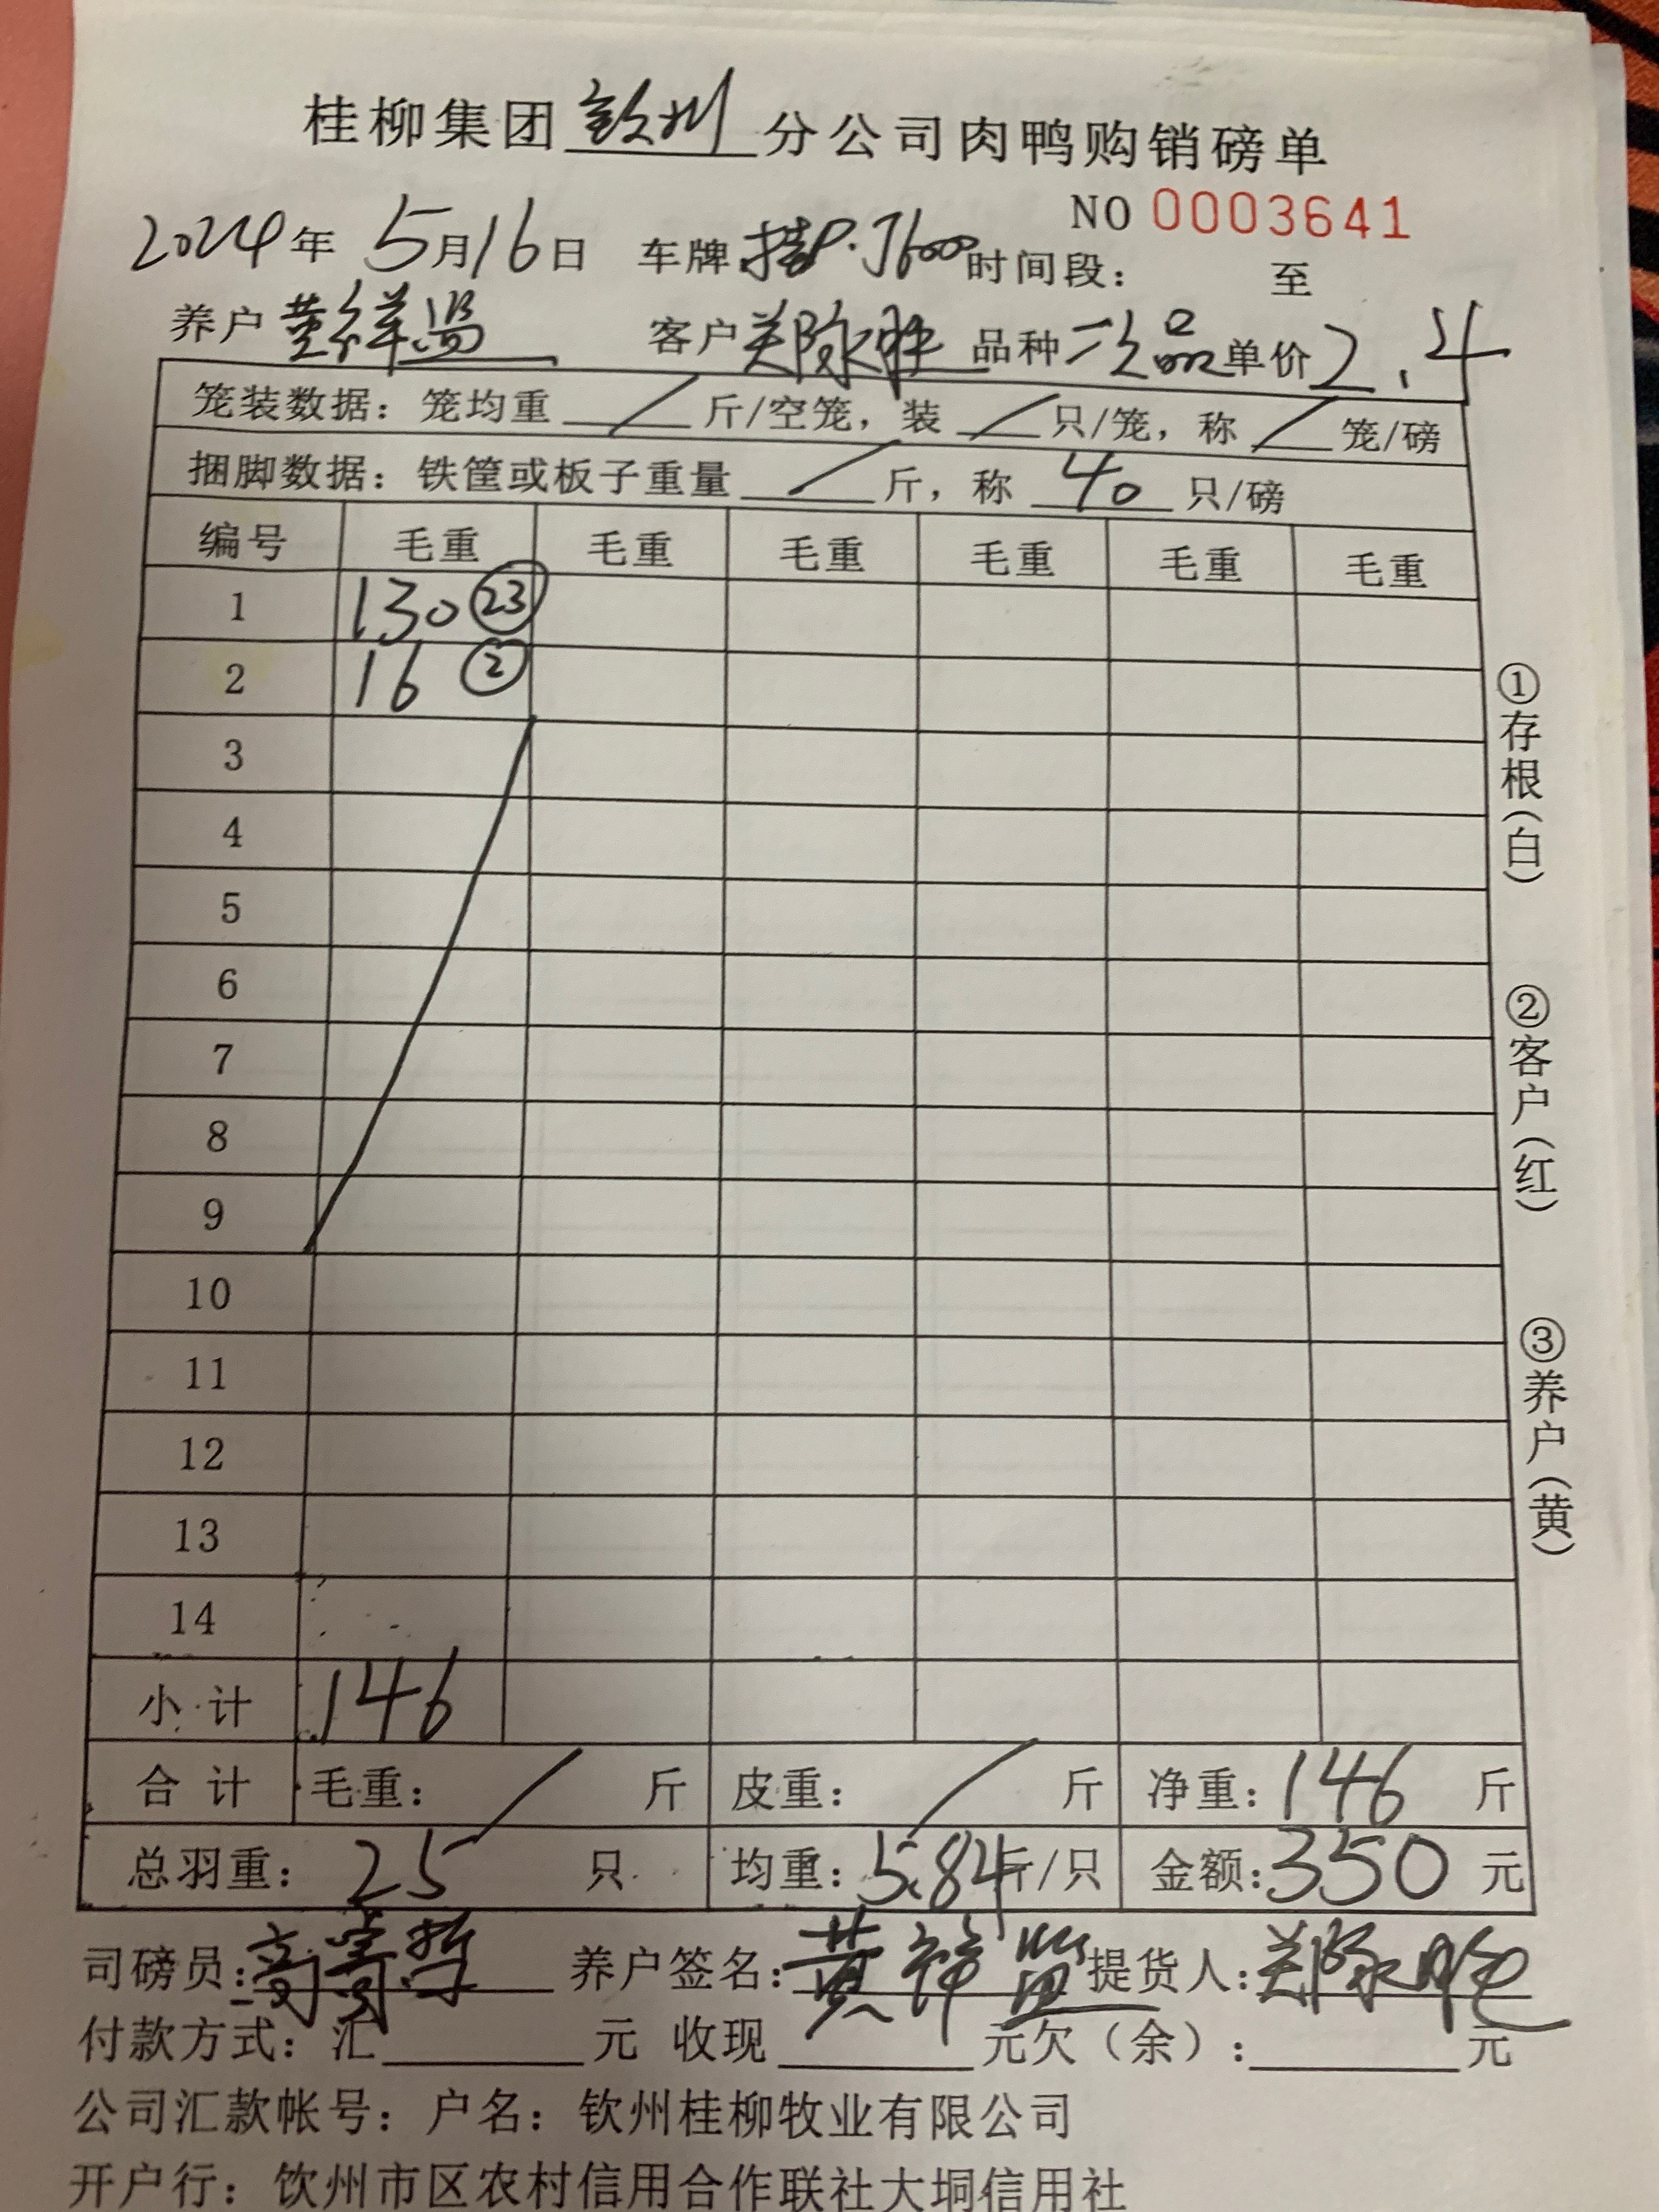 桂柳集团钦州分公司肉鸭购销磅单
NO 0003641
2024年 5月16日 车牌 桂P·J6000 时间段: 至
养户 黄祥 客户 品种 次品 单价 2.4
笼装数据: 笼均重 / 斤/空笼, 装 / 只/笼, 称 / 笼/磅
捆脚数据: 铁筐或板子重量 / 斤, 称 40 只/磅
编号 毛重 毛重 毛重 毛重 毛重 毛重
1 130 ㉓
2 16 ②
3
4
5
6
7
8
9
10
11
12
13
14
小计 146
合计 毛重: / 斤 皮重: / 斤 净重: 146 斤
总羽重: 25 只 均重: 5.84斤/只 金额: 350 元
司磅员: 养户签名: 黄祥 提货人:
付款方式: 汇 元 收现 元欠(余): 元
公司汇款帐号: 户名: 钦州桂柳牧业有限公司
开户行: 钦州市区农村信用合作联社大垌信用社
①存根(白)
②客户(红)
③养户(黄)